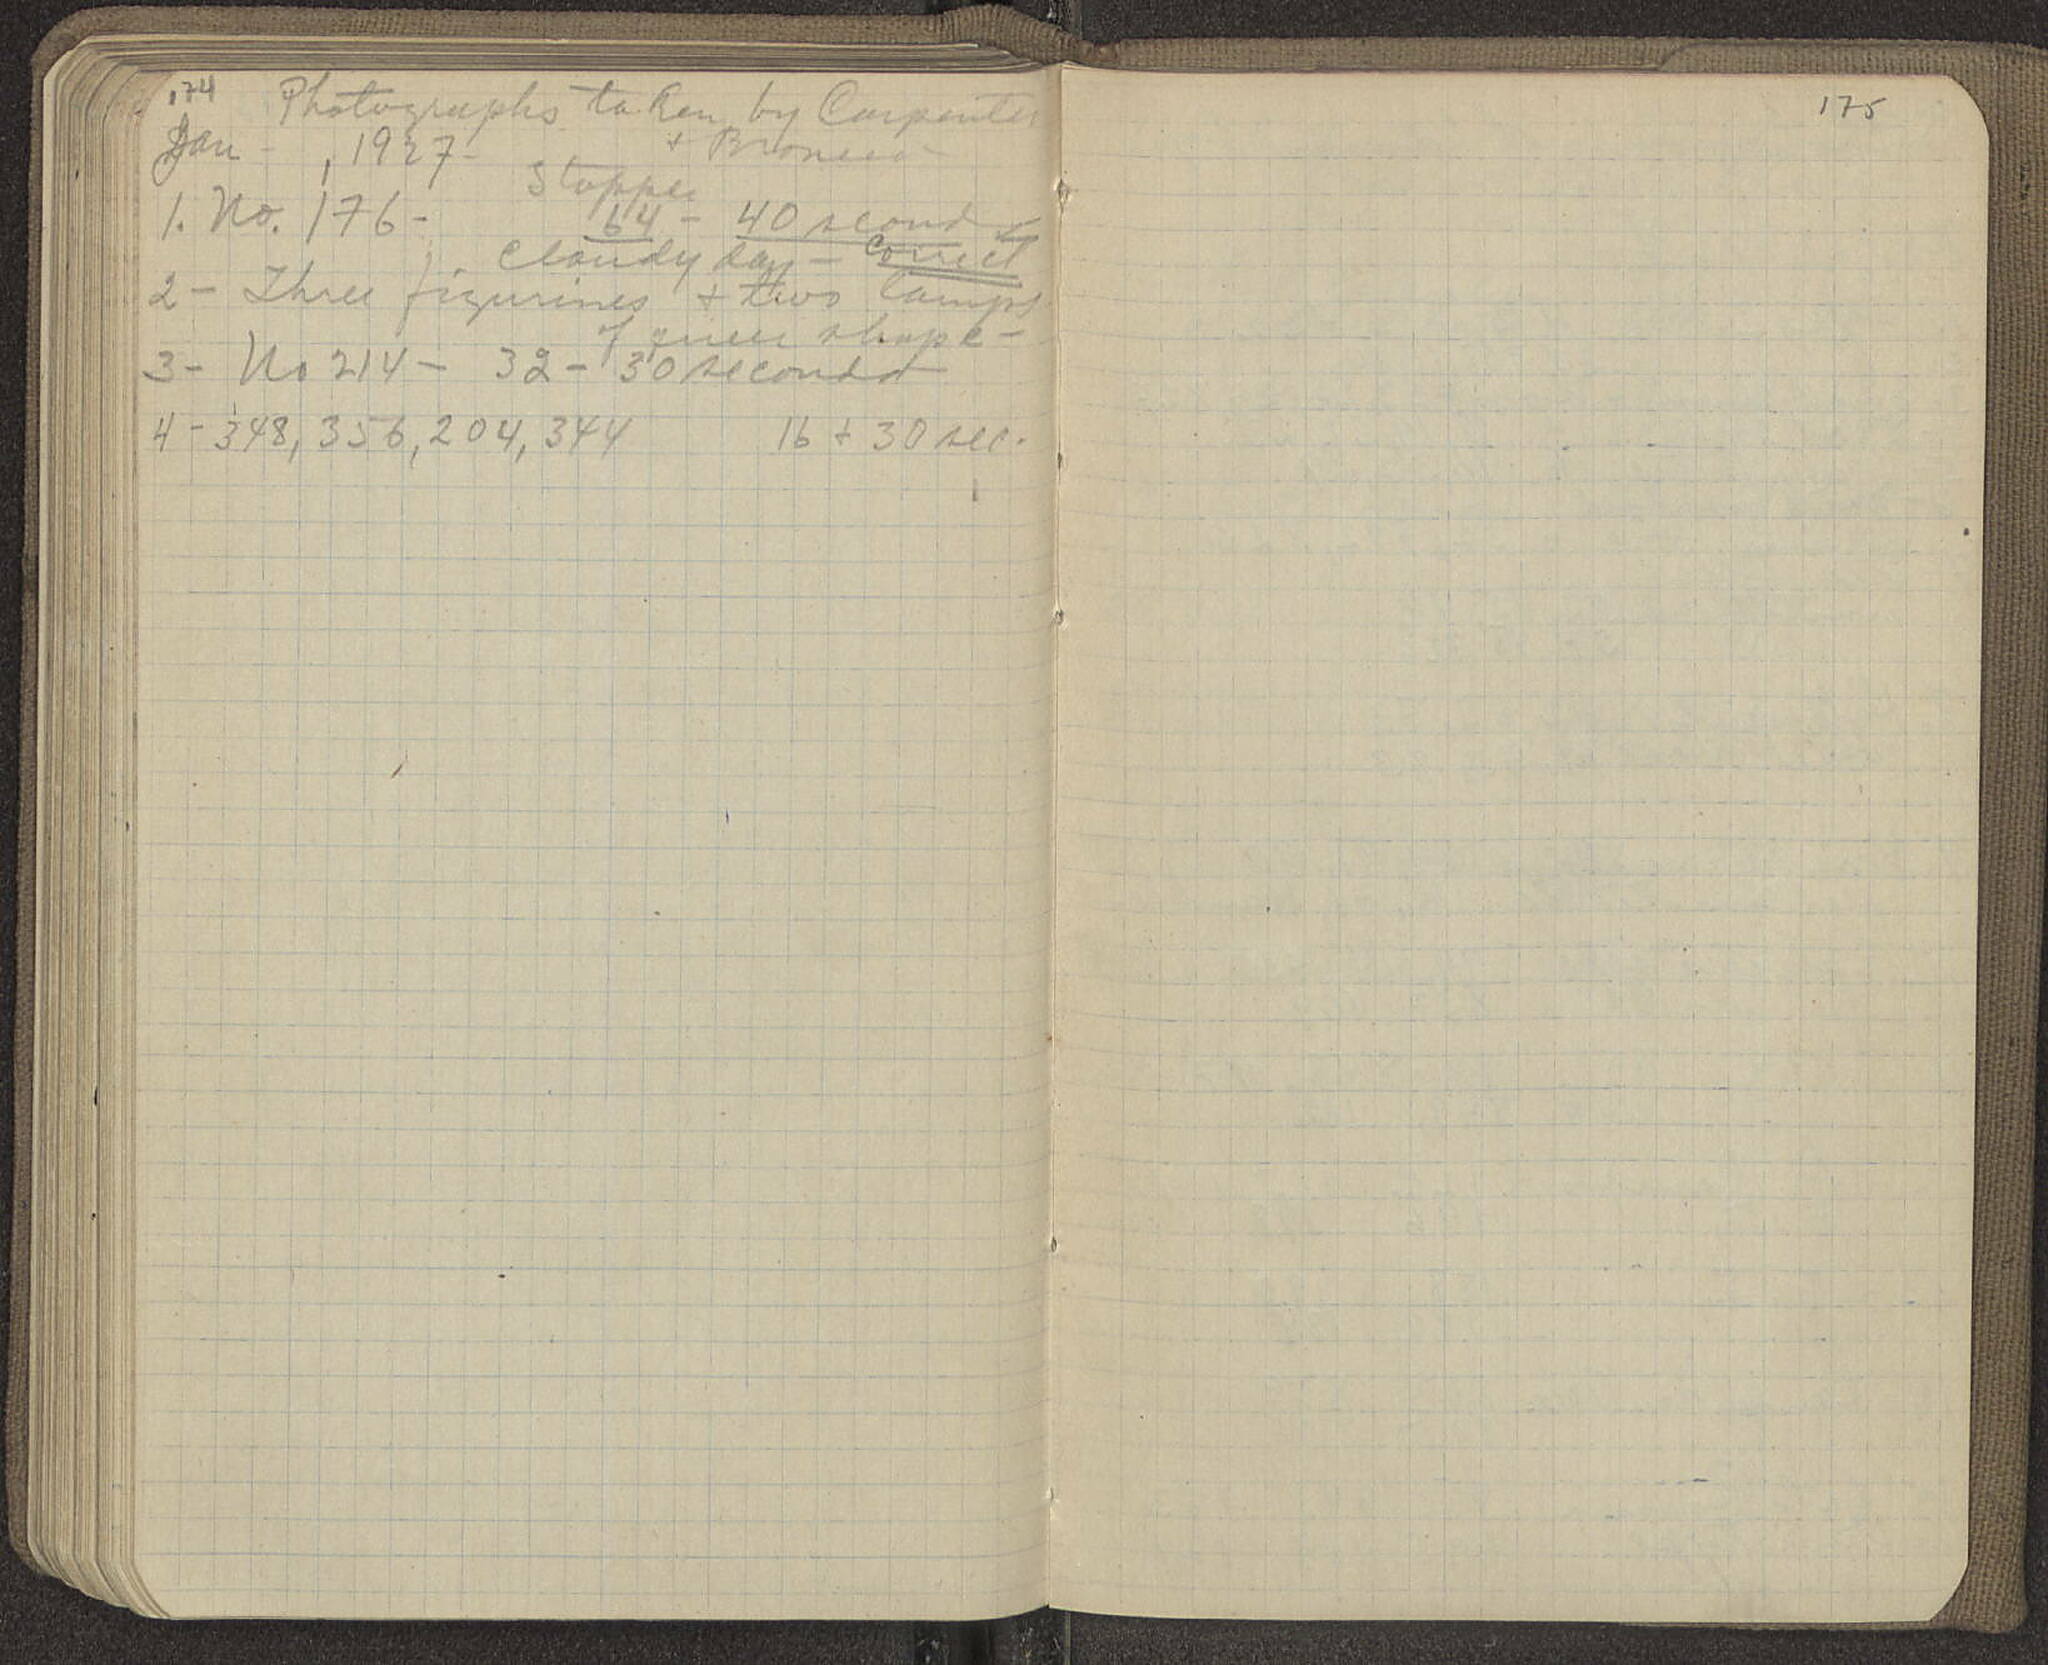 174
Photographs taken by Carpenter
Jan - , 1927-
+ Broneer
Stopper
1. No. 176- 64 - 40 seconds
Cloudy day - correct
2 - Three figurines + two lamps
of queer shape -
3 - No 214 - 32 - 30 seconds
4 - 348, 356, 204, 344 16 + 30 sec.
175